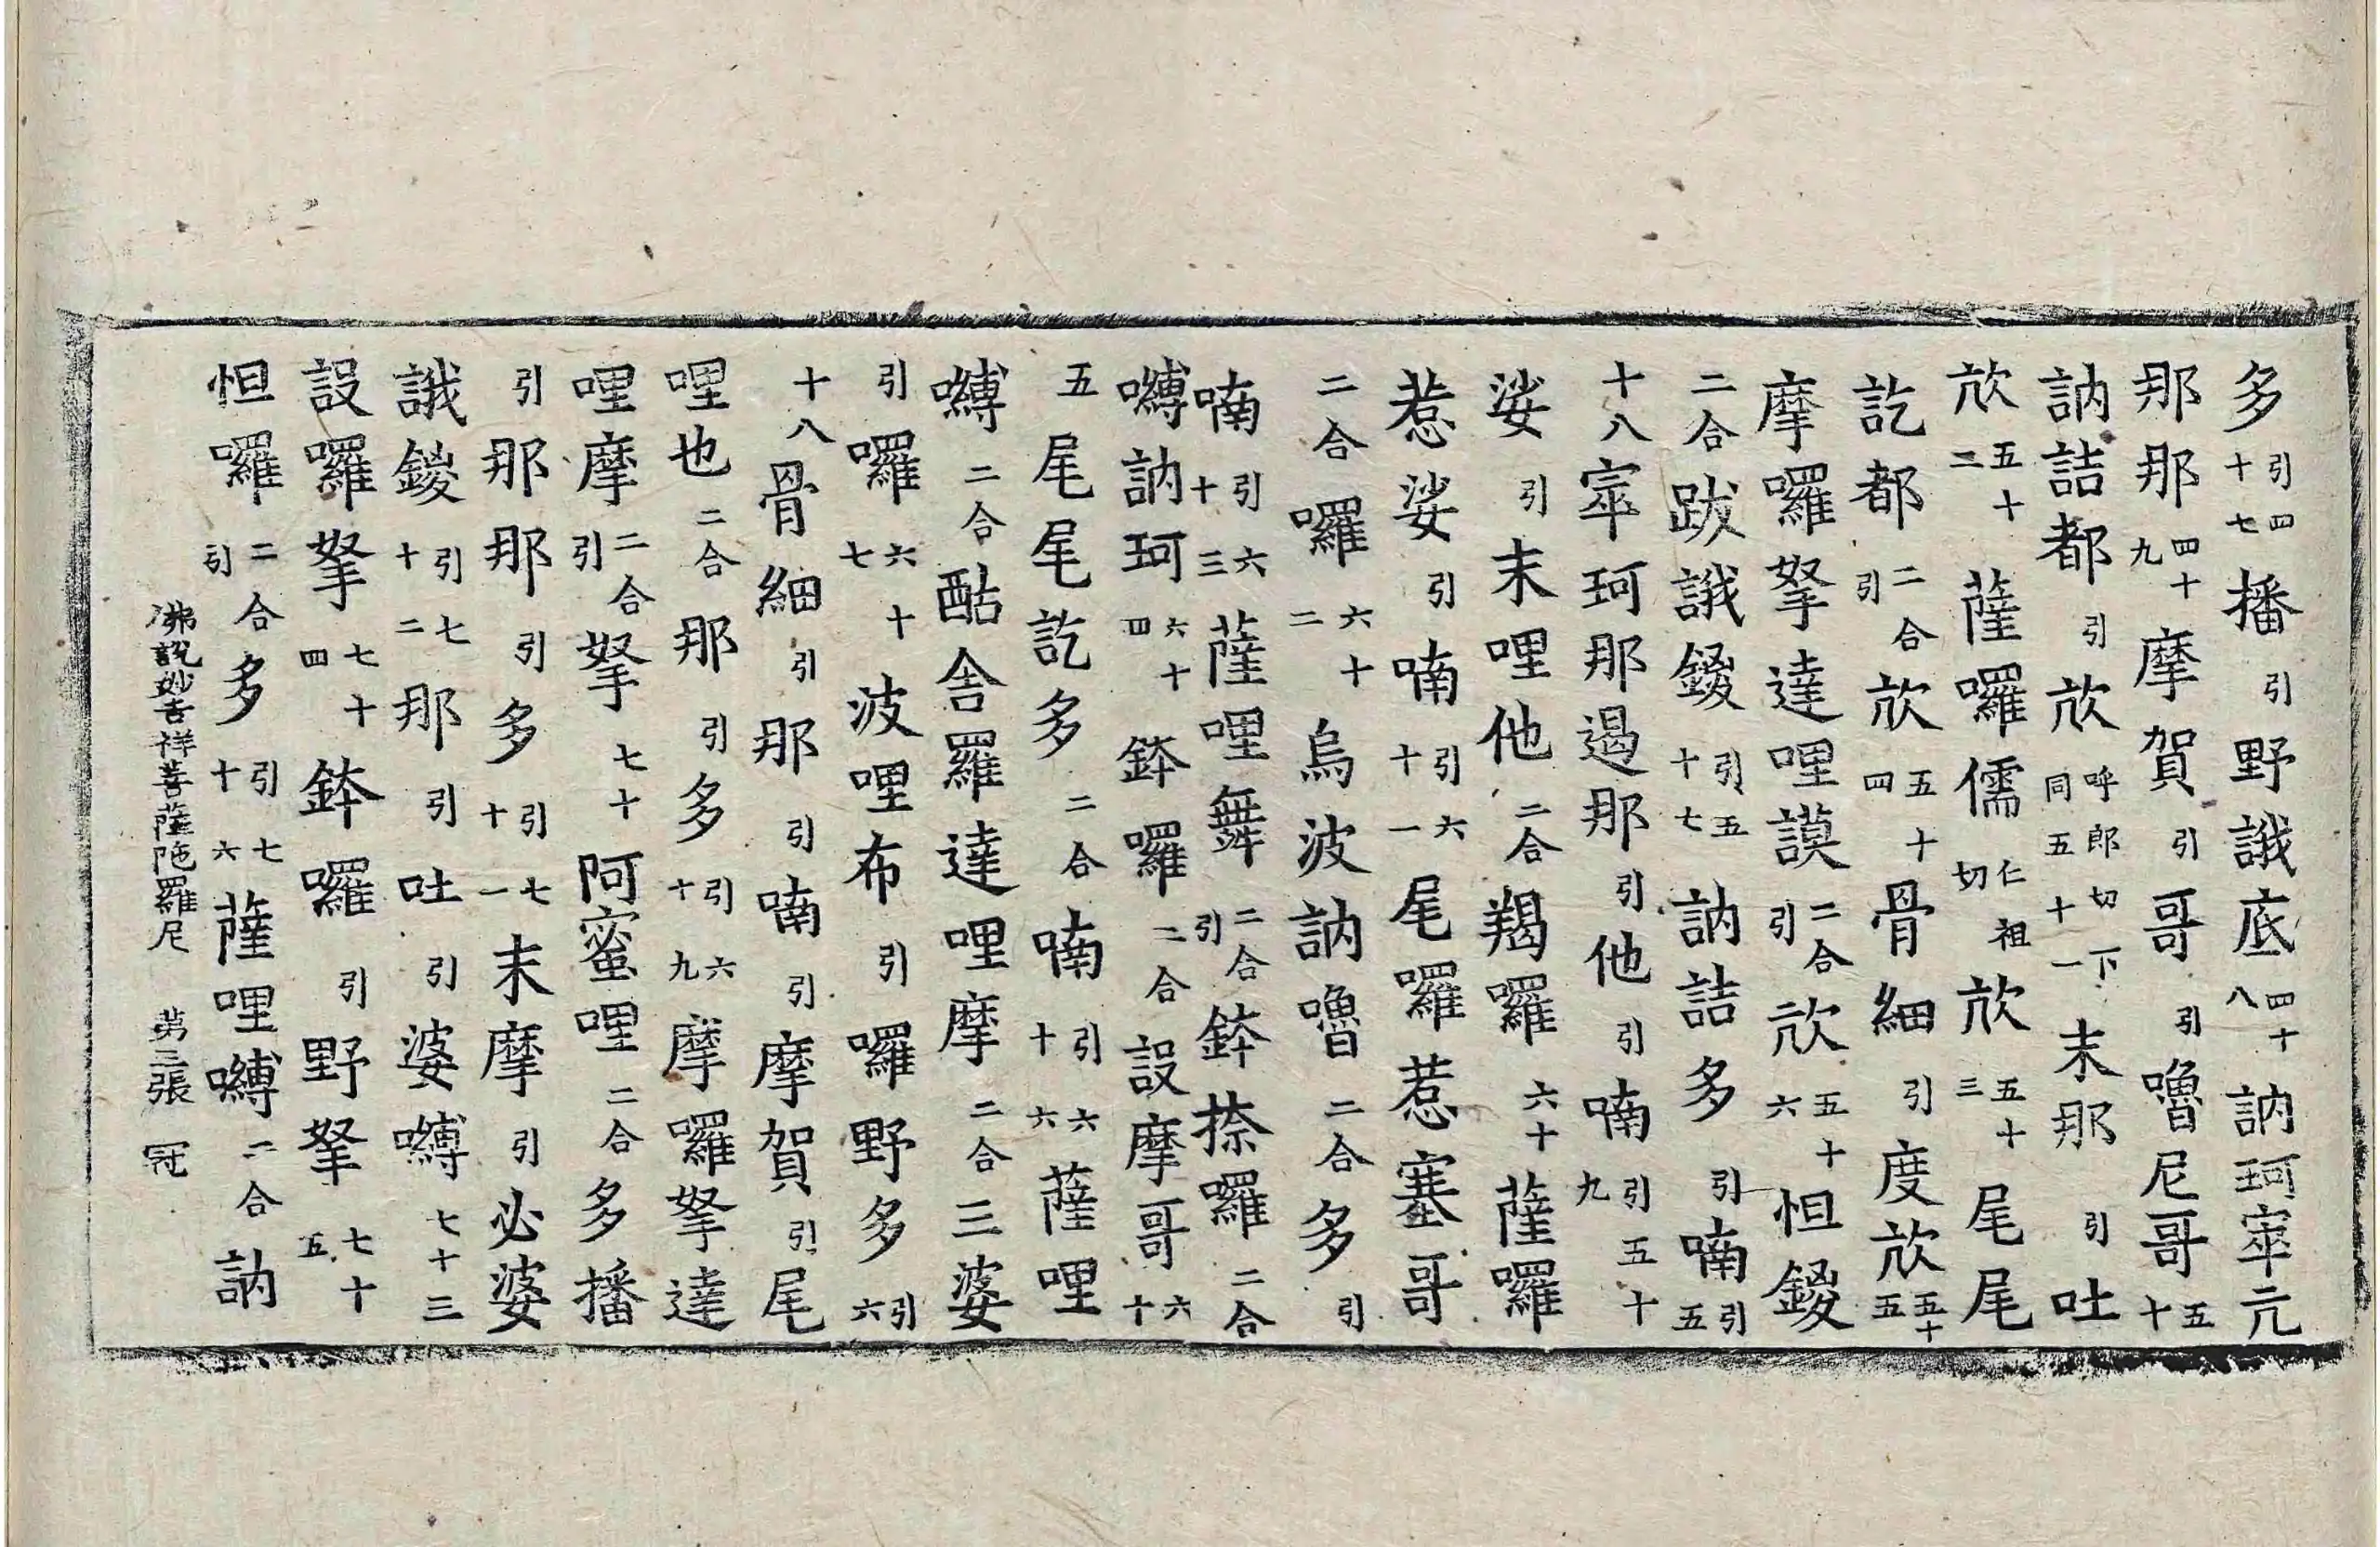 多引四十七播引野誐底四十八訥珂寧亢
那那四十九摩賀引哥引嚕尼哥五十
訥詰都引㰠呼郎切下同五十一末那引吐
㰠五十二薩囉儒仁祖切㰠五十三尾尾
訖都二合引㰠五十四骨細引度㰠五十五
摩囉拏達哩謨二合引㰠五十六怛鍐
二合跋誐鍐引五十七訥詰多引喃引五
十八寧珂那遏那引他引喃引五十九
娑引末哩他二合羯囉六十薩囉
惹娑引喃引六十一尾囉惹塞哥
二合囉六十二烏波訥嚕二合多引
喃引六十三薩哩舞二合引鉢捺囉二合
嚩訥珂六十四鉢囉二合設摩哥六十
五尾尾訖多二合喃引六十六薩哩
嚩二合酤舍羅達哩摩二合三婆
引囉六十七波哩布引囉野多引六
十八骨細引那引喃引摩賀引尾
哩也二合那引多引六十九摩囉拏達
哩摩二合引拏七十阿蜜哩二合多播
引那那引多引七十一末摩引必婆
誐鍐引七十二那引吐引婆嚩七十三
設囉拏七十四鉢囉引野拏七十五
怛囉二合引多引七十六薩哩嚩二合訥
佛說妙吉祥菩薩陁羅尼 第三張 冠